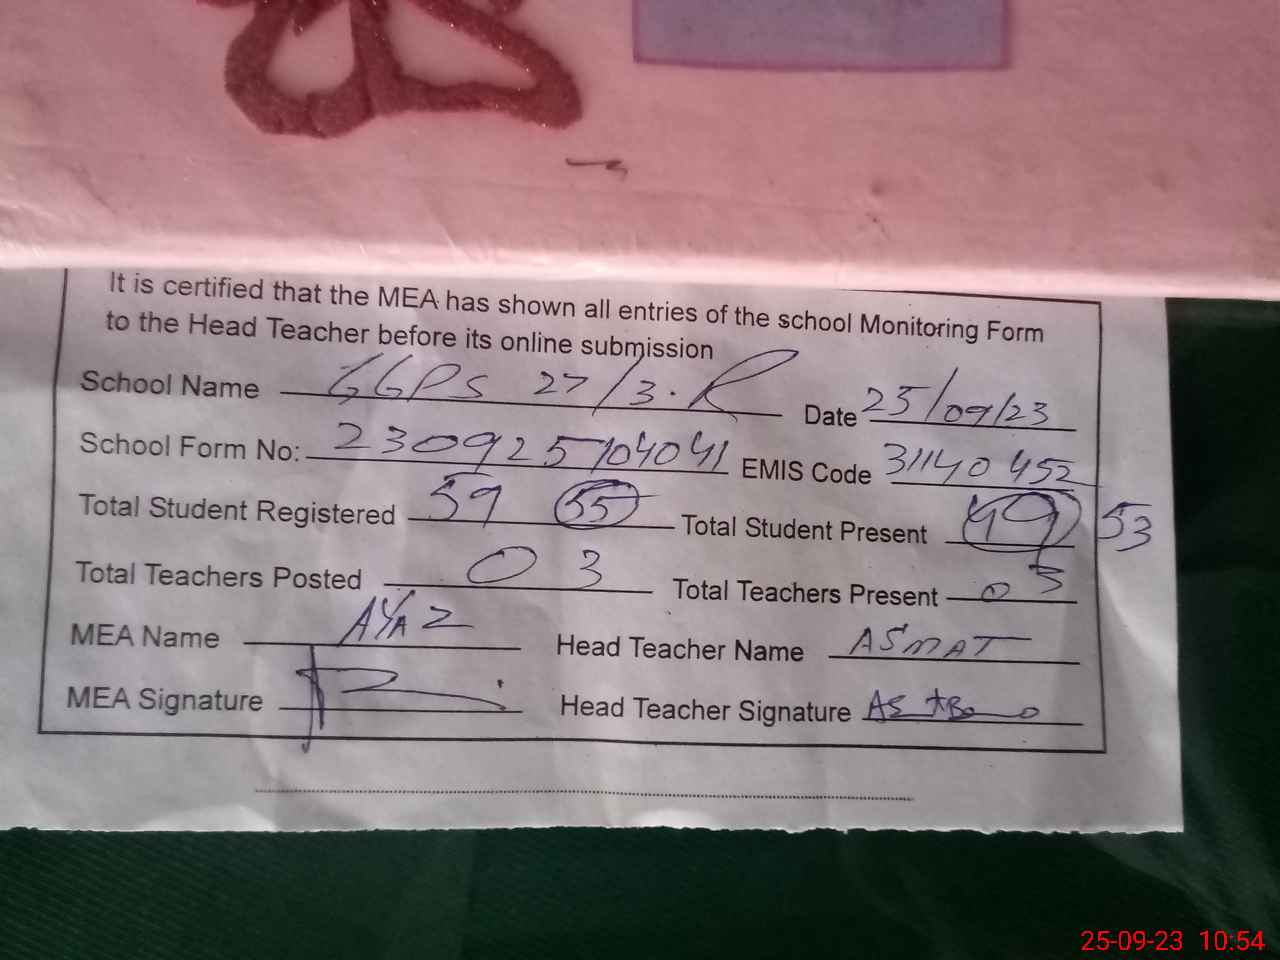 It is certified that the MEA has shown all entries of the school Monitoring Form
to the Head Teacher before its online submission
School Name GGPS 27/3.R Date 25/09/23
School Form No: 230925104041 EMIS Code 31140452
Total Student Registered 59 55 Total Student Present 49 53
Total Teachers Posted 03 Total Teachers Present 03
MEA Name AYAZ Head Teacher Name ASMAT
MEA Signature Head Teacher Signature
25-09-23 10:54